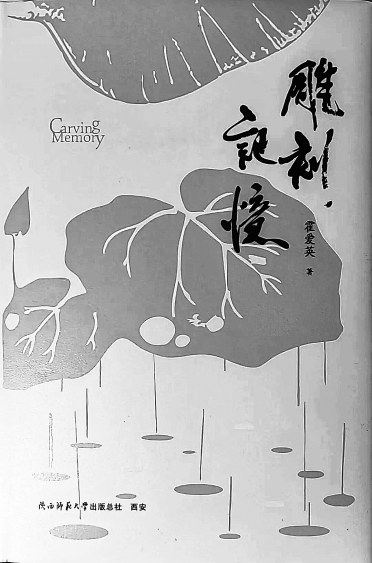 雕刻，
记忆
Carving
Memory
霍爱英 著
陕西师范大学出版总社 西安